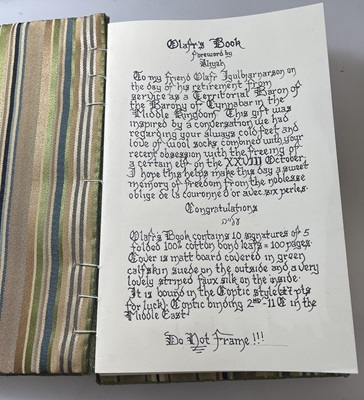 Olafr's Book
Foreword by
Aliyah
To my friend Olafr Igulbjarnarson on
the day of his retirement from
service as a Territorial Baron of
the Barony of Cynnabar in the
Middle Kingdom. This gift was
inspired by a conversation we had
regarding your always cold feet and
love of wool socks combined with your
recent obsession with the freeing of
a certain elf on the XXVIII October,
I hope this helps make this day a sweet
memory of freedom from the noblesse
oblige de la couronne d or avec six perles.
Congratulations
Olafr's Book contains 10 signatures of 5
folded 100% cotton bond leafs = 100 pages.
Cover is matt board covered in green
calfskin suede on the outside and a very
lovely striped faux silk on the inside.
It is bound in the Coptic style
for luck). Coptic binding 2nd - 11 C in the
Middle East.
Do Not Frame !!!